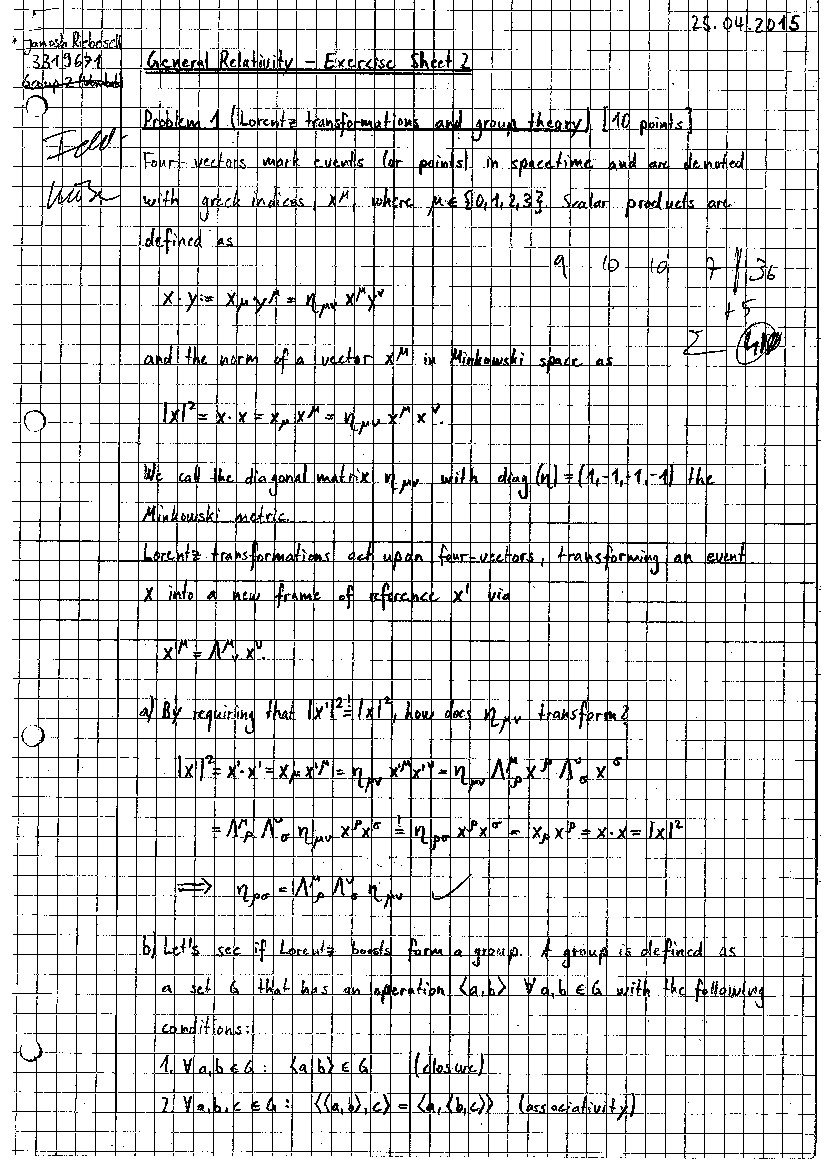 25.04.2015
Janosh Riebesell
3319671
General Relativity – Exercise Sheet 2
Group 2
Problem 1 (Lorentz transformations and group theory) [10 points]
Four-vectors mark events (or points) in spacetime and are denoted
with greek indices, x^μ, where μ ∈ {0,1,2,3}. Scalar products are
defined as
9 10 10 7 || 36
+5
x·y := x_μ y^μ = η_μν x^μ y^ν
Σ
and the norm of a vector x^μ in Minkowski space as
|x|² = x·x = x_μ x^μ = η_μν x^μ x^ν.
We call the diagonal matrix η_μν with diag(η) = (1,-1,-1,-1) the
Minkowski metric.
Lorentz transformations act upon four-vectors, transforming an event
x into a new frame of reference x' via
x'^μ = Λ^μ_ν x^ν.
a) By requiring that |x'|² != |x|², how does η_μν transform?
|x'|² = x'·x' = x'_μ x'^μ = η_μν x'^μ x'^ν = η_μν Λ^μ_ρ x^ρ Λ^ν_σ x^σ
= Λ^μ_ρ Λ^ν_σ η_μν x^ρ x^σ != η_ρσ x^ρ x^σ = x_ρ x^ρ = x·x = |x|²
⟹ η_ρσ = Λ^μ_ρ Λ^ν_σ η_μν ✓
b) Let's see if Lorentz boosts form a group. A group is defined as
a set G that has an operation ⟨a,b⟩ ∀ a,b ∈ G with the following
conditions:
1. ∀ a,b ∈ G: ⟨a,b⟩ ∈ G (closure)
2. ∀ a,b,c ∈ G: ⟨⟨a,b⟩,c⟩ = ⟨a,⟨b,c⟩⟩ (associativity)